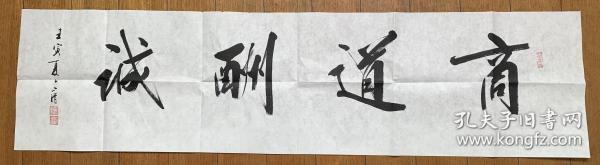 商道酬诚
壬寅夏
孔夫子旧书网
www.kongfz.com